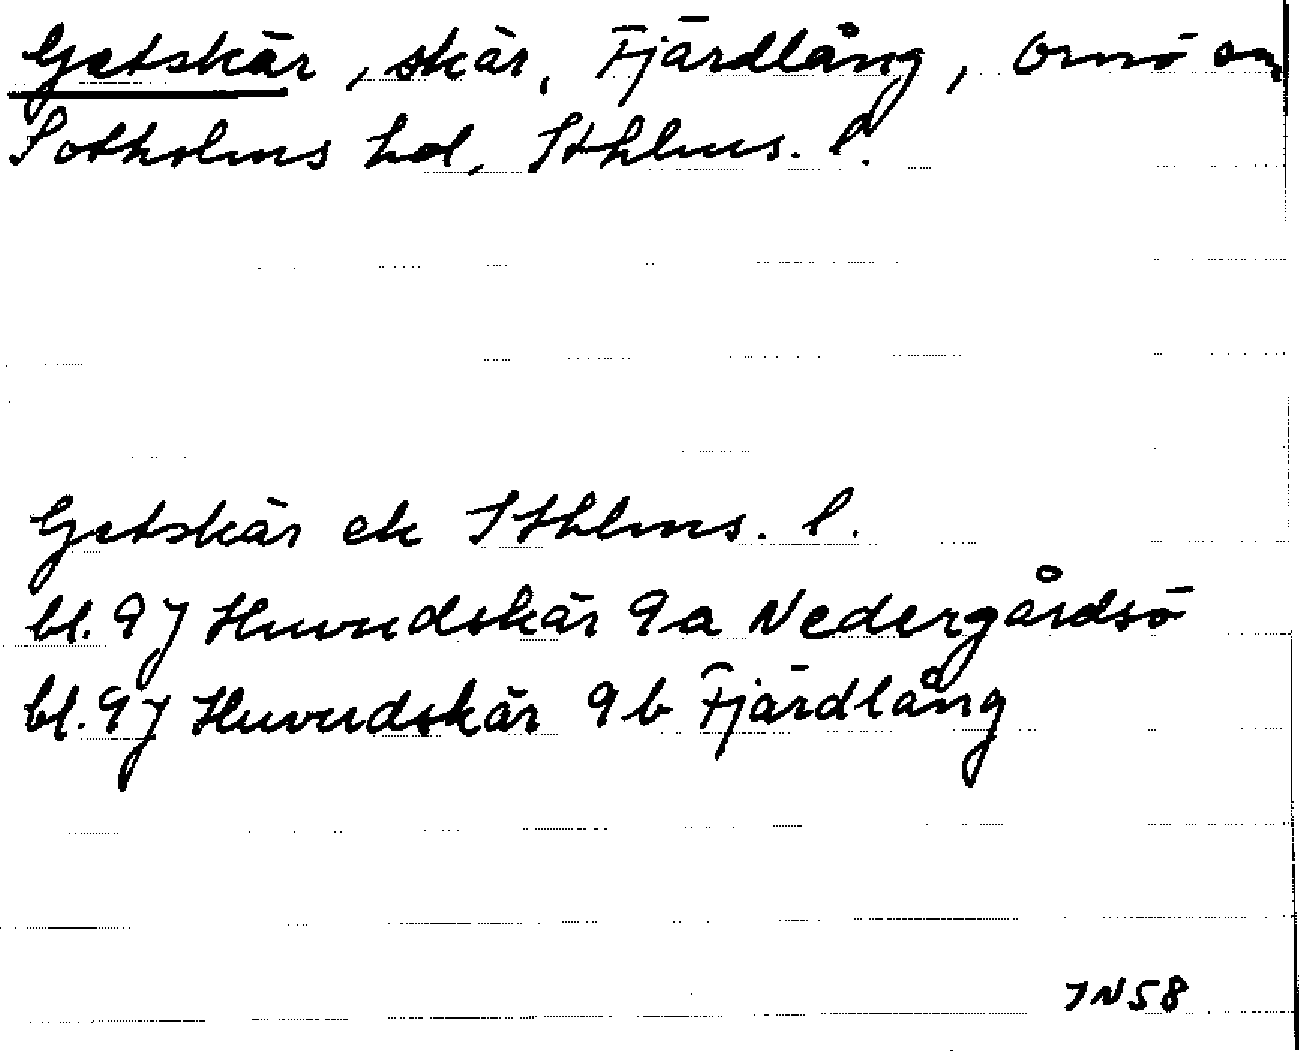 Getskär, skär, Fjärdlång, Ornö sn
Sotholms hd, Sthlms. l.
Getskär ek Sthlms. l.
bl. 9J Huvudskär 9a Nedergårdsö
bl. 9J Huvudskär 9b Fjärdlång
JN58